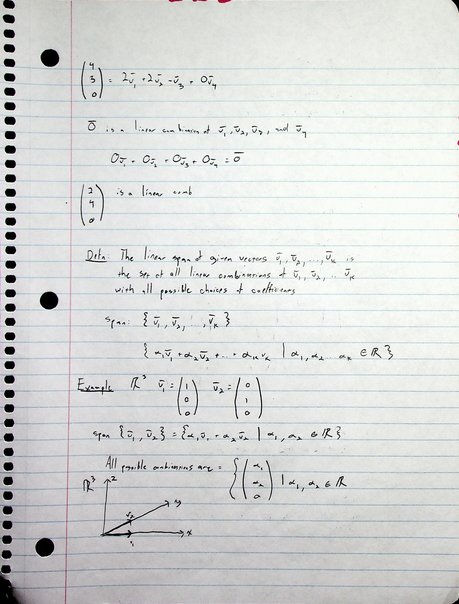 (4 3 0) = 2v̄₁ + 2v̄₂ - v̄₃ + 0v̄₄
0̄ is a linear combination of v̄₁, v̄₂, v̄₃, and v̄₄
0v̄₁ + 0v̄₂ + 0v̄₃ + 0v̄₄ = 0̄
(2 4 0) is a linear comb
Defn: The linear span of given vectors v̄₁, v̄₂, ..., v̄ₖ is
the set of all linear combinations of v̄₁, v̄₂, .. v̄ₖ
with all possible choices of coefficients
span: { v̄₁, v̄₂, ..., v̄ₖ }
{ α₁v̄₁ + α₂v̄₂ + ... + αₖvₖ | α₁, α₂ .. αₖ ∈ ℝ }
Example ℝ³ v̄₁ = (1 0 0) v̄₂ = (0 1 0)
span { v̄₁, v̄₂ } = { α₁v̄₁ + α₂v̄₂ | α₁, α₂ ∈ ℝ }
All possible combinations are = { (α₁ α₂ 0) | α₁, α₂ ∈ ℝ
ℝ³ z
y
v₂
x